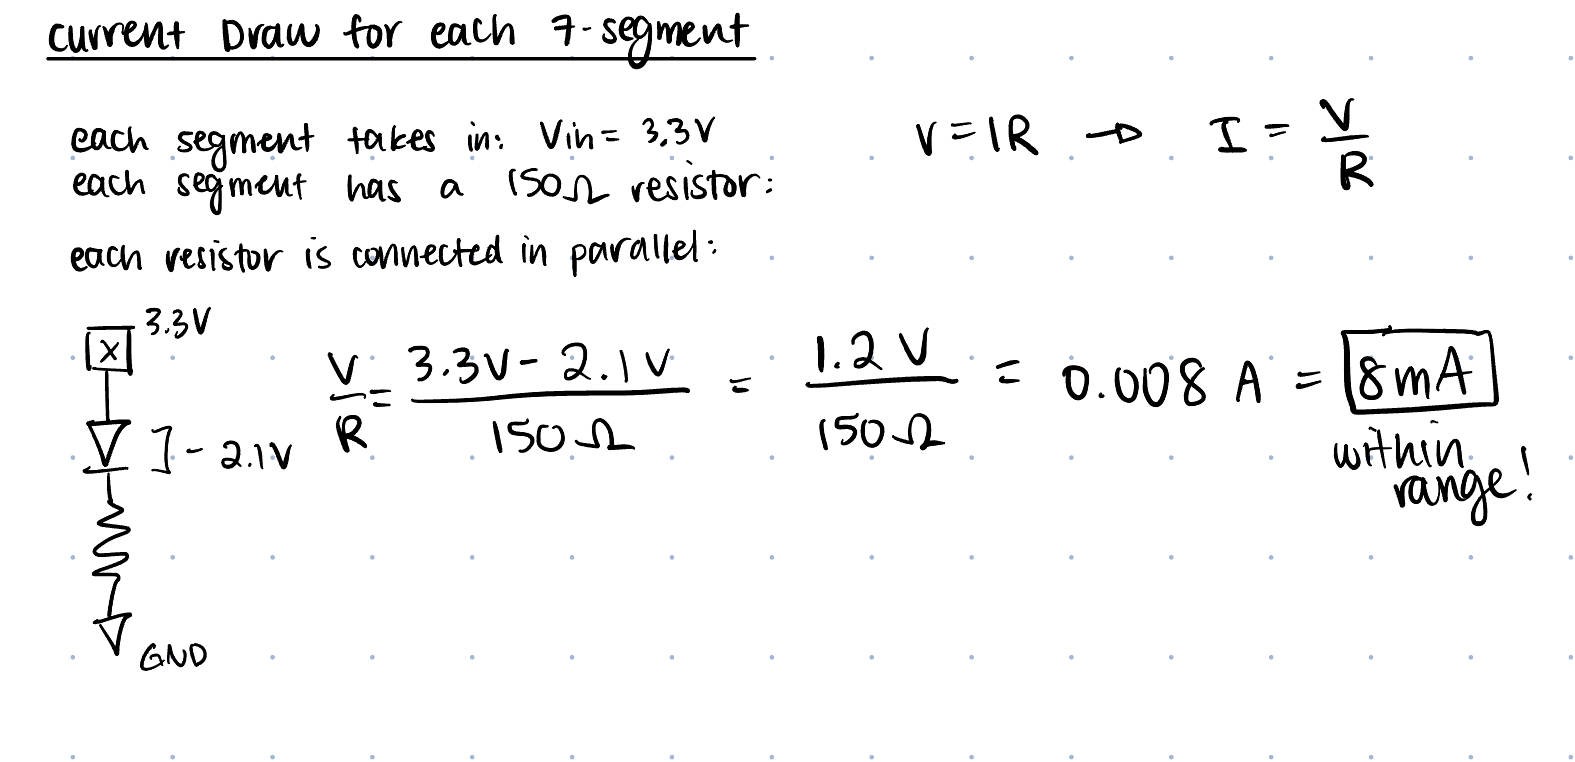 current Draw for each 7-segment
each segment takes in: Vin = 3.3V
each segment has a 150Ω resistor:
each resistor is connected in parallel:
V = IR → I = V/R
3.3V
X
] - 2.1V
GND
V/R = (3.3V - 2.1V)/150Ω = 1.2V/150Ω = 0.008 A = 8mA
within
range!